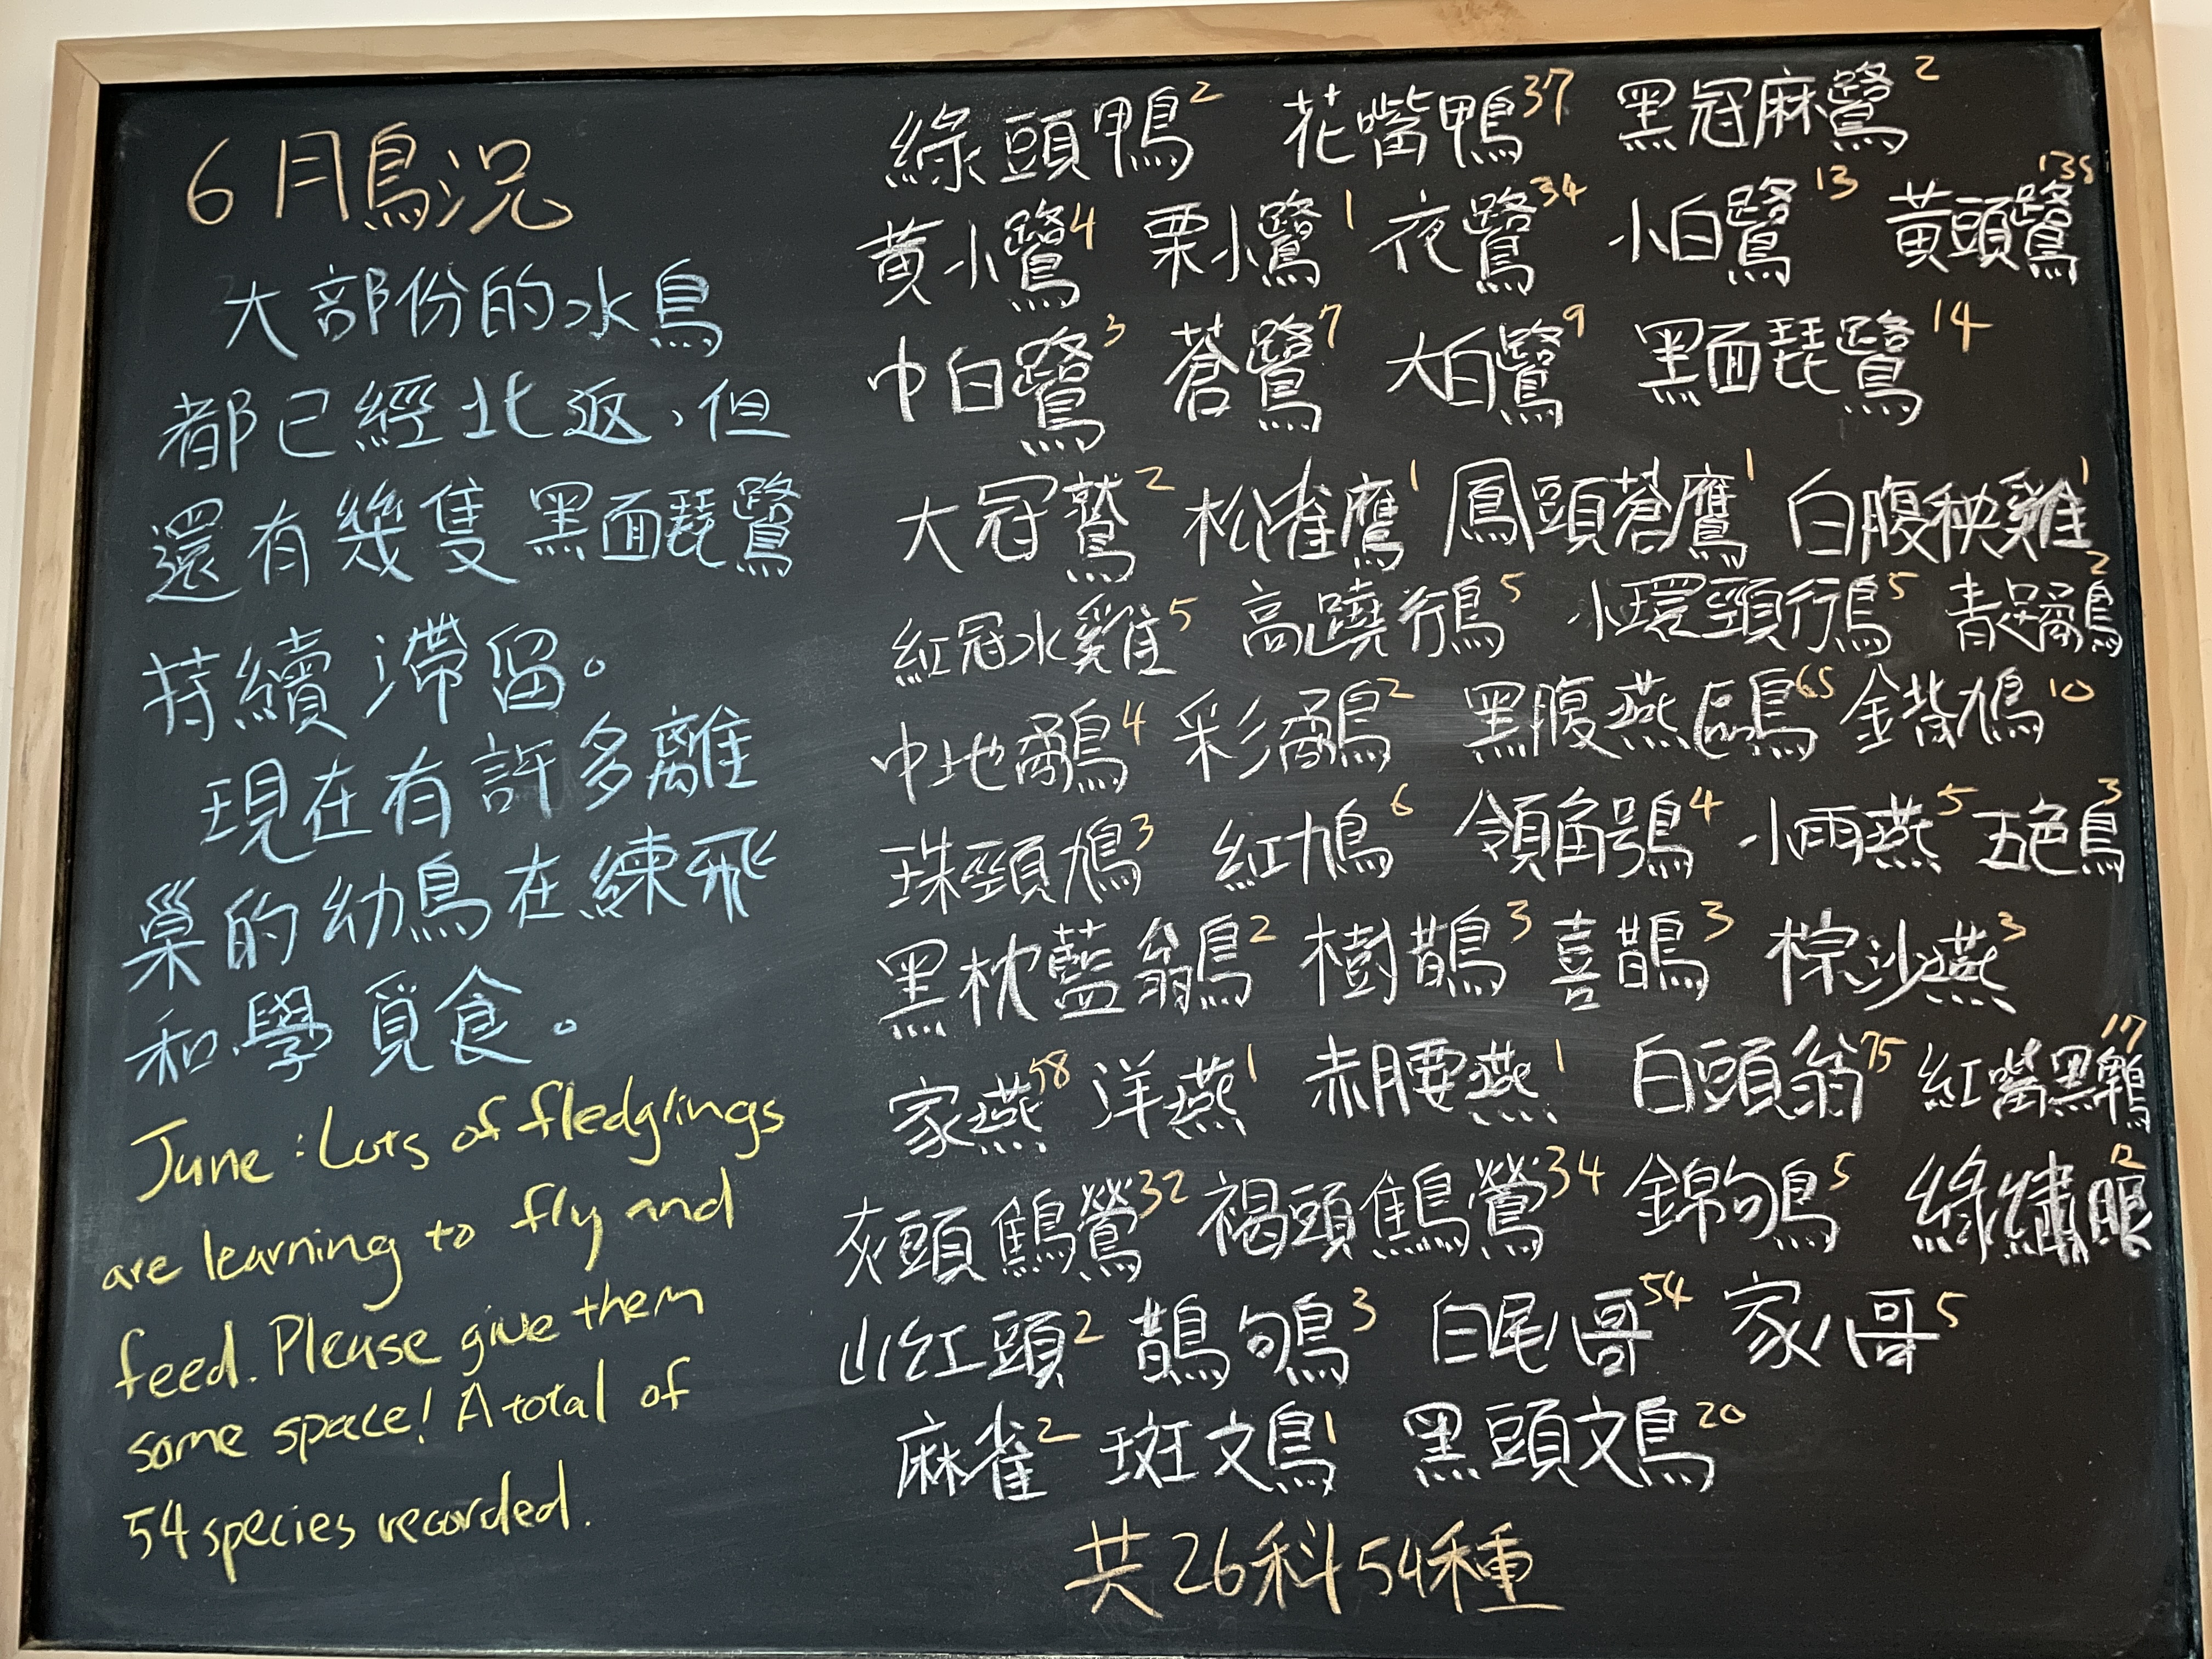 6月鳥況
大部份的水鳥
都已經北返,但
還有幾隻黑面琵鷺
持續滯留。
現在有許多離
巢的幼鳥在練飛
和學覓食。
June: Lots of fledglings
are learning to fly and
feed. Please give them
some space! A total of
54 species recorded.
綠頭鴨2 花嘴鴨37 黑冠麻鷺2
黃小鷺4 栗小鷺1 夜鷺34 小白鷺13 黃頭鷺138
中白鷺3 蒼鷺7 大白鷺9 黑面琵鷺14
大冠鷲2 松雀鷹1 鳳頭蒼鷹1 白腹秧雞1
紅冠水雞5 高蹺鴴5 小環頸鴴5 青足鷸2
中地鷸4 彩鷸2 黑腹燕鷗65 金背鳩10
珠頸鳩3 紅鳩6 領角鴞4 小雨燕5 五色鳥3
黑枕藍鶲2 樹鵲3 喜鵲3 棕沙燕3
家燕58 洋燕1 赤腰燕1 白頭翁75 紅嘴黑鵯17
灰頭鷦鶯32 褐頭鷦鶯34 錦鴝5 綠繡眼12
山紅頭2 鵲鴝3 白尾八哥54 家八哥5
麻雀2 斑文鳥1 黑頭文鳥20
共26科54種